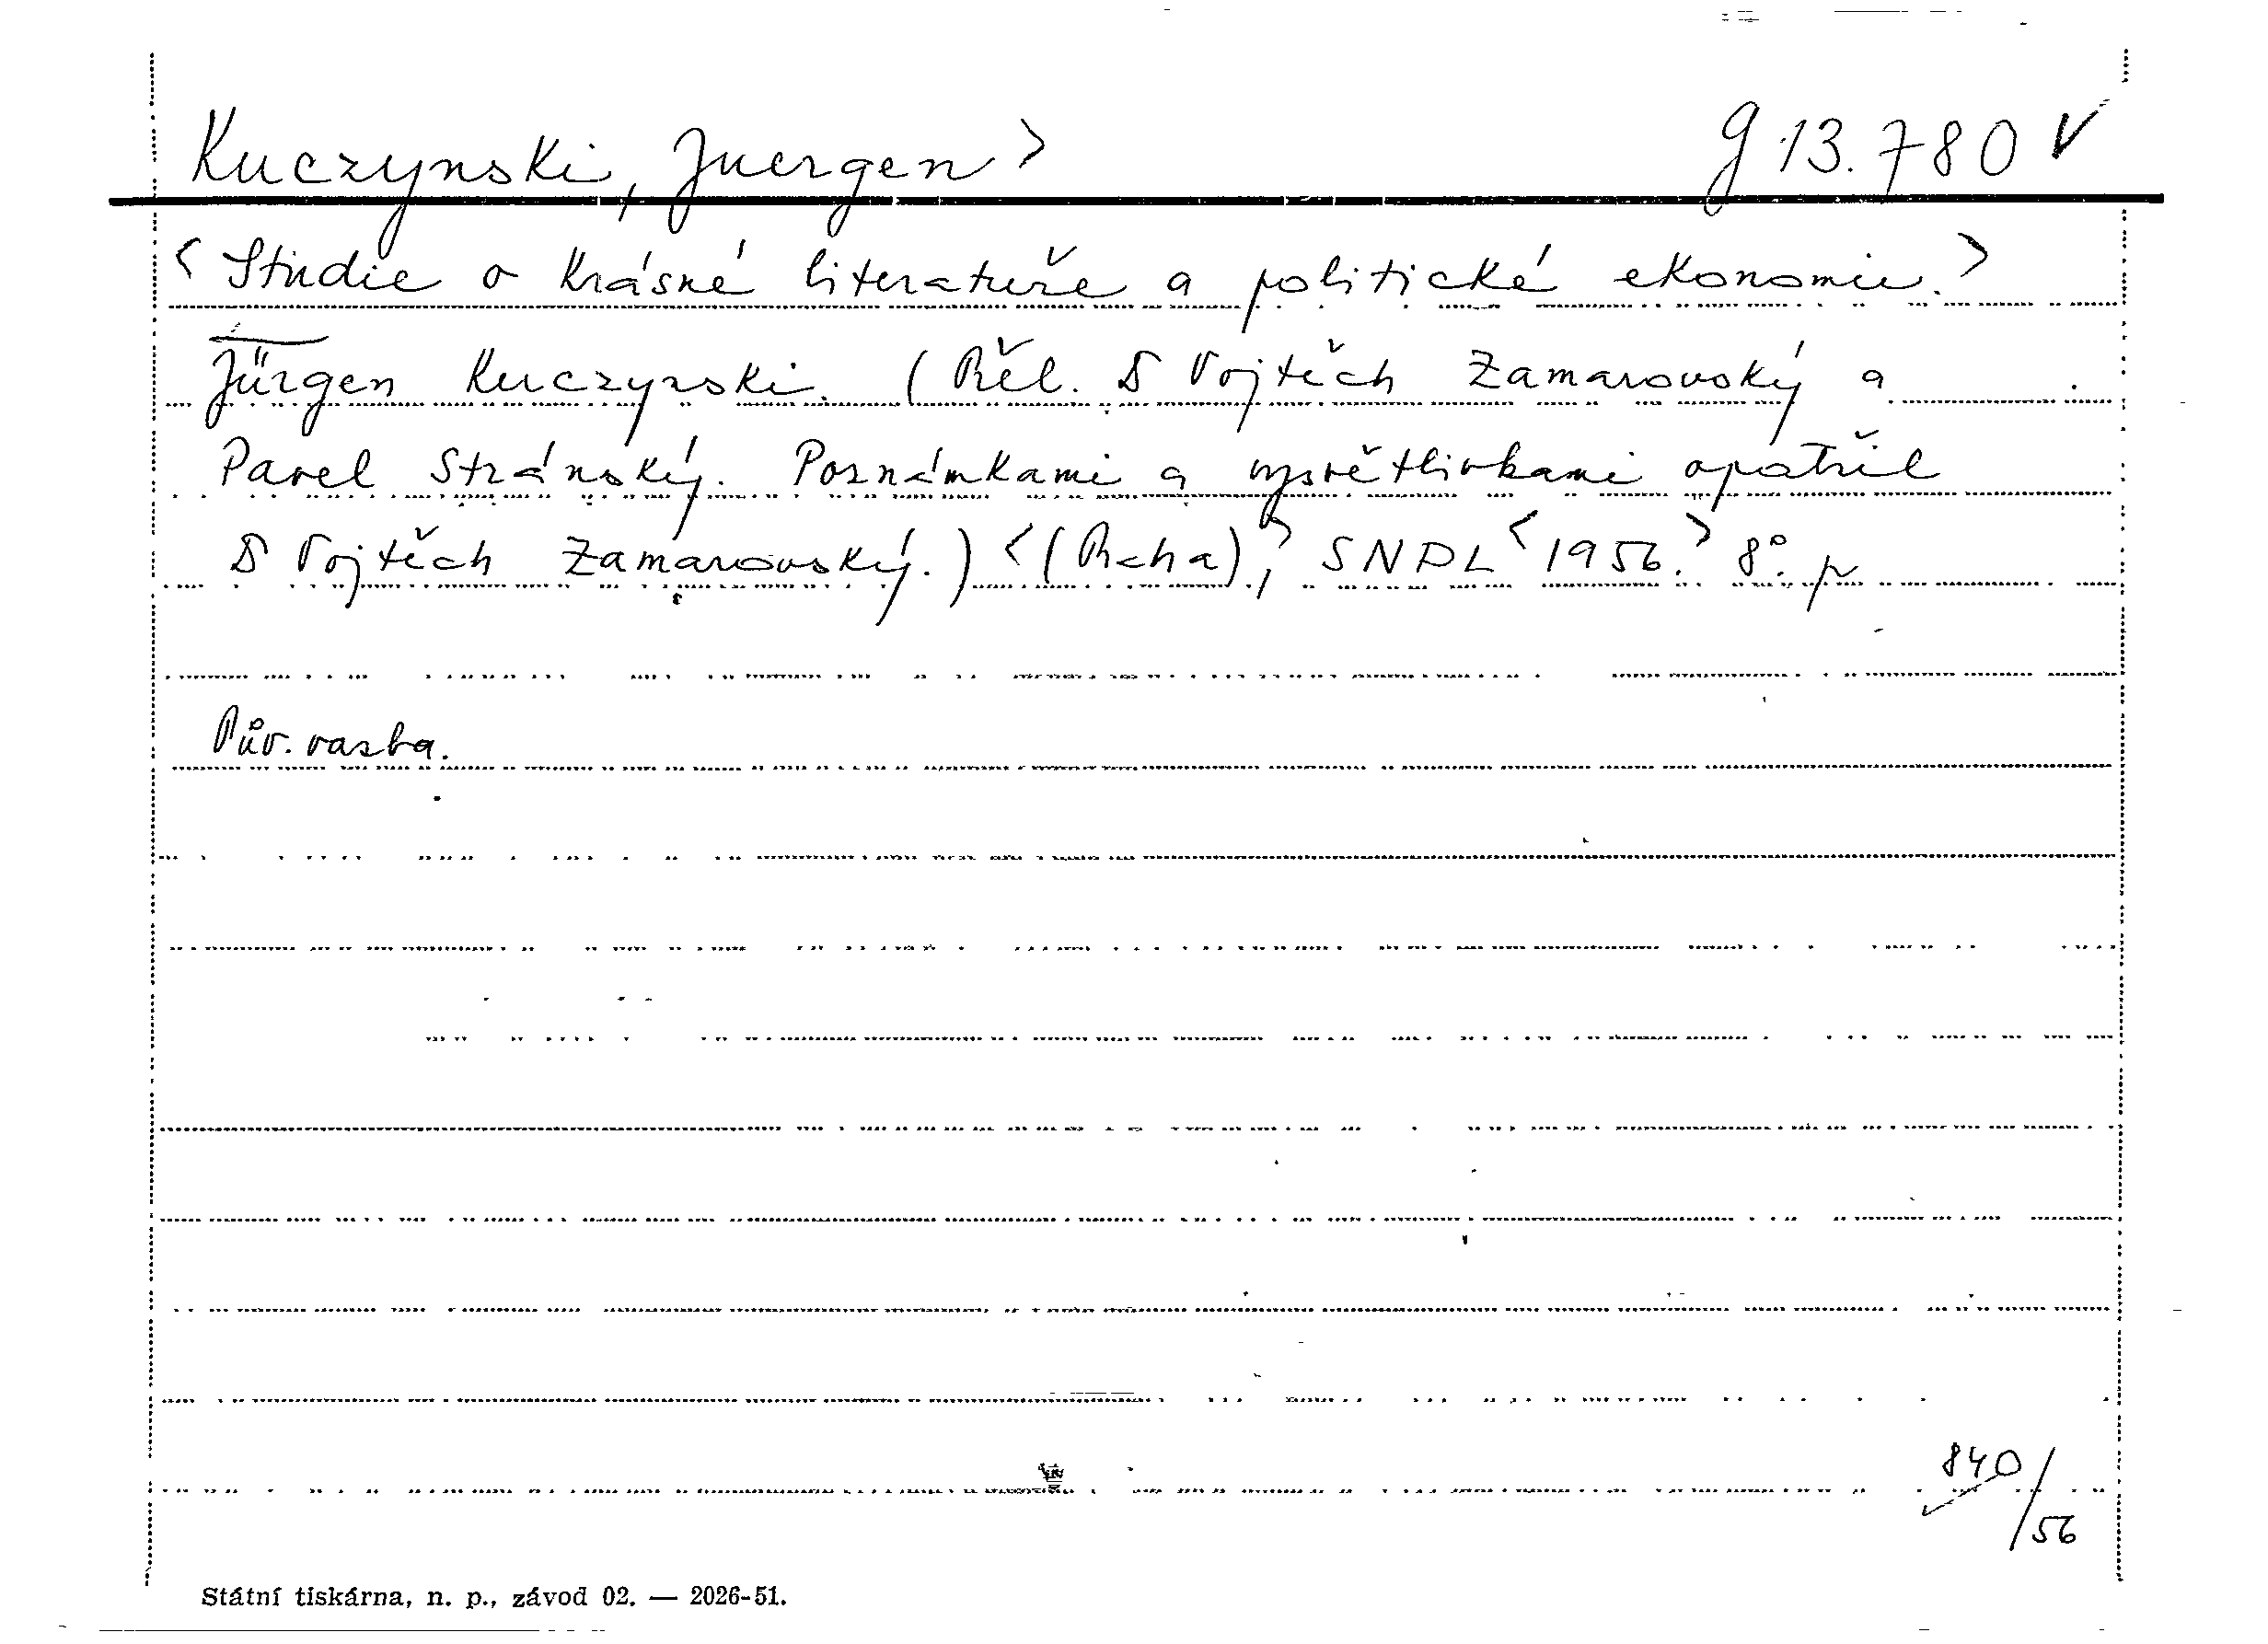 Kuczynski, Juergen > g 13.780 V
< Studie o krásné literatuře a politické ekonomii. >
Jürgen Kuczynski. (Přel. D Vojtěch Zamarovský a
Pavel Stránský. Poznámkami a vysvětlivkami opatřil
D Vojtěch Zamarovský.) < (Praha), > SNPL < 1956. > 8°. p
Pův. vazba.
840/56
Státní tiskárna, n. p., závod 02. — 2026-51.